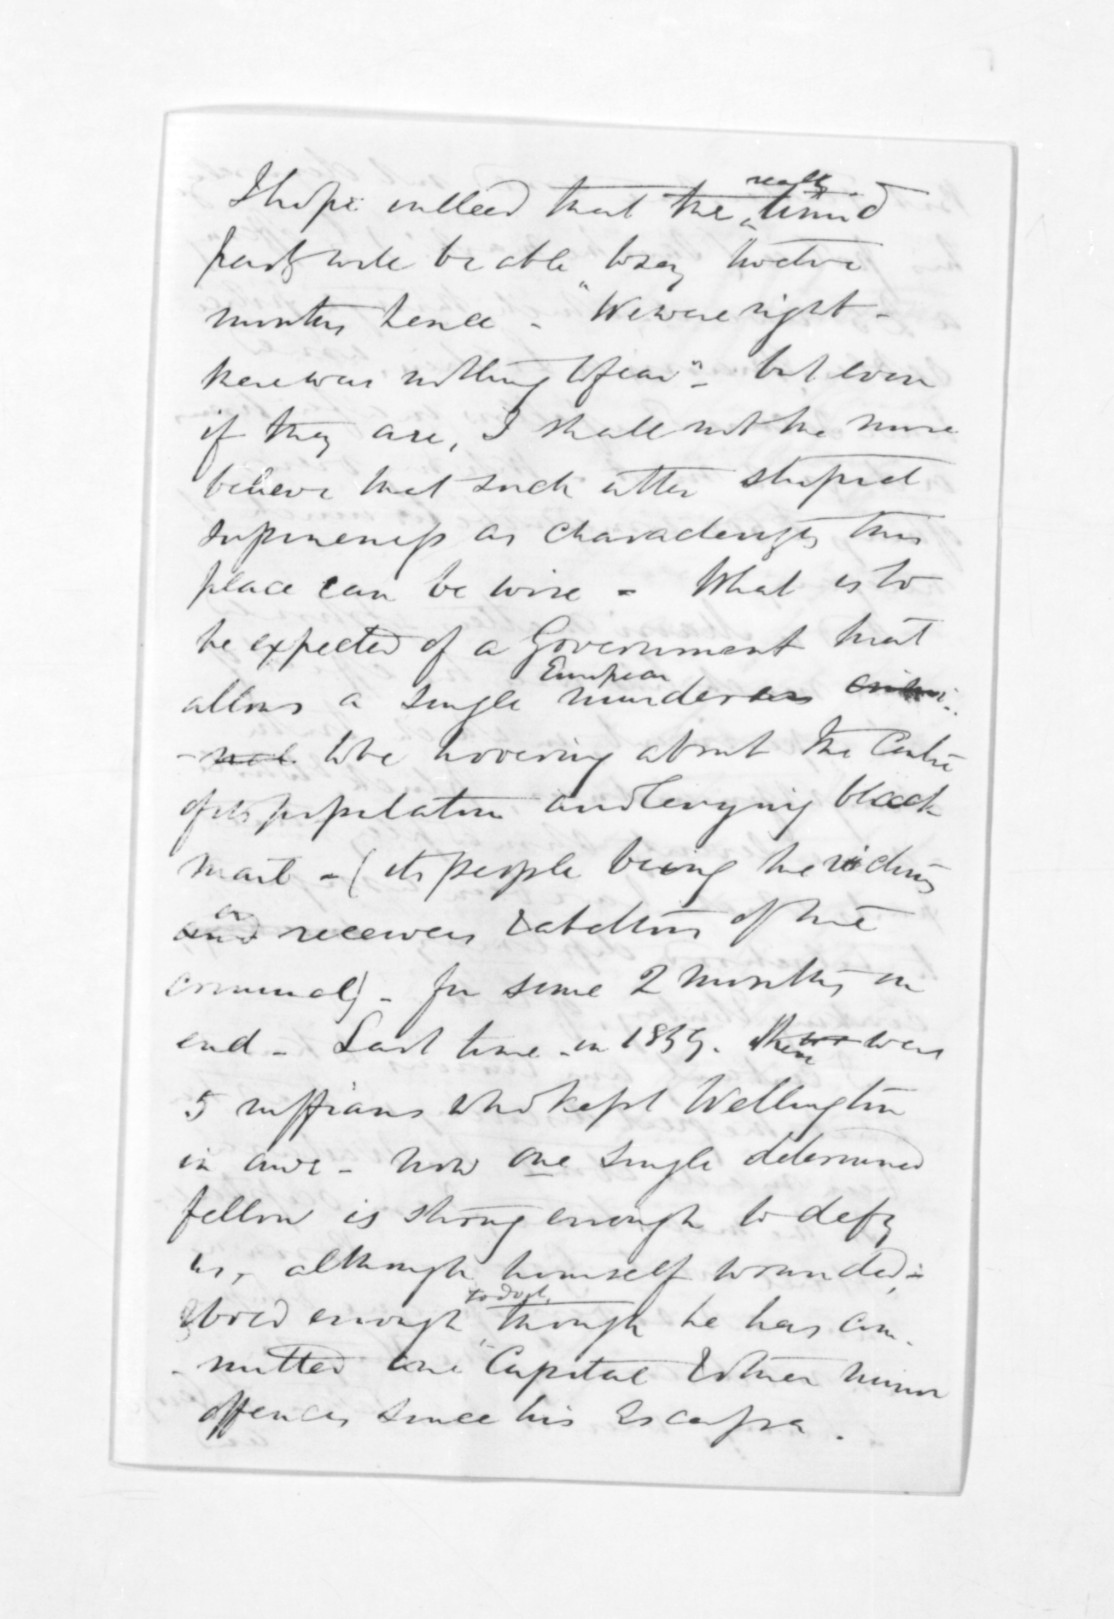 I hope indeed that the really timid
party will be able to say twelve
months hence - "We were right -
there was nothing to fear" - but even
if they are, I shall not the more
believe that such utter stupid
supineness as characterizes this
place can be wise - What is to
be expected of a Government that
allows a single European murderer crimi-
-nal to be hovering about the Centre
of its population and levying black
mail - (its people being the victims
and or receivers & abettors of the
criminal) - for some 2 months on
end - Last time - in 1859. there was
5 ruffians who kept Wellington
in awe - now one single determined
fellow is strong enough to defy
us, although himself wounded,
& bold enough to do it, though he has com-
-mitted one Capital & other minor
offences since his Escape.